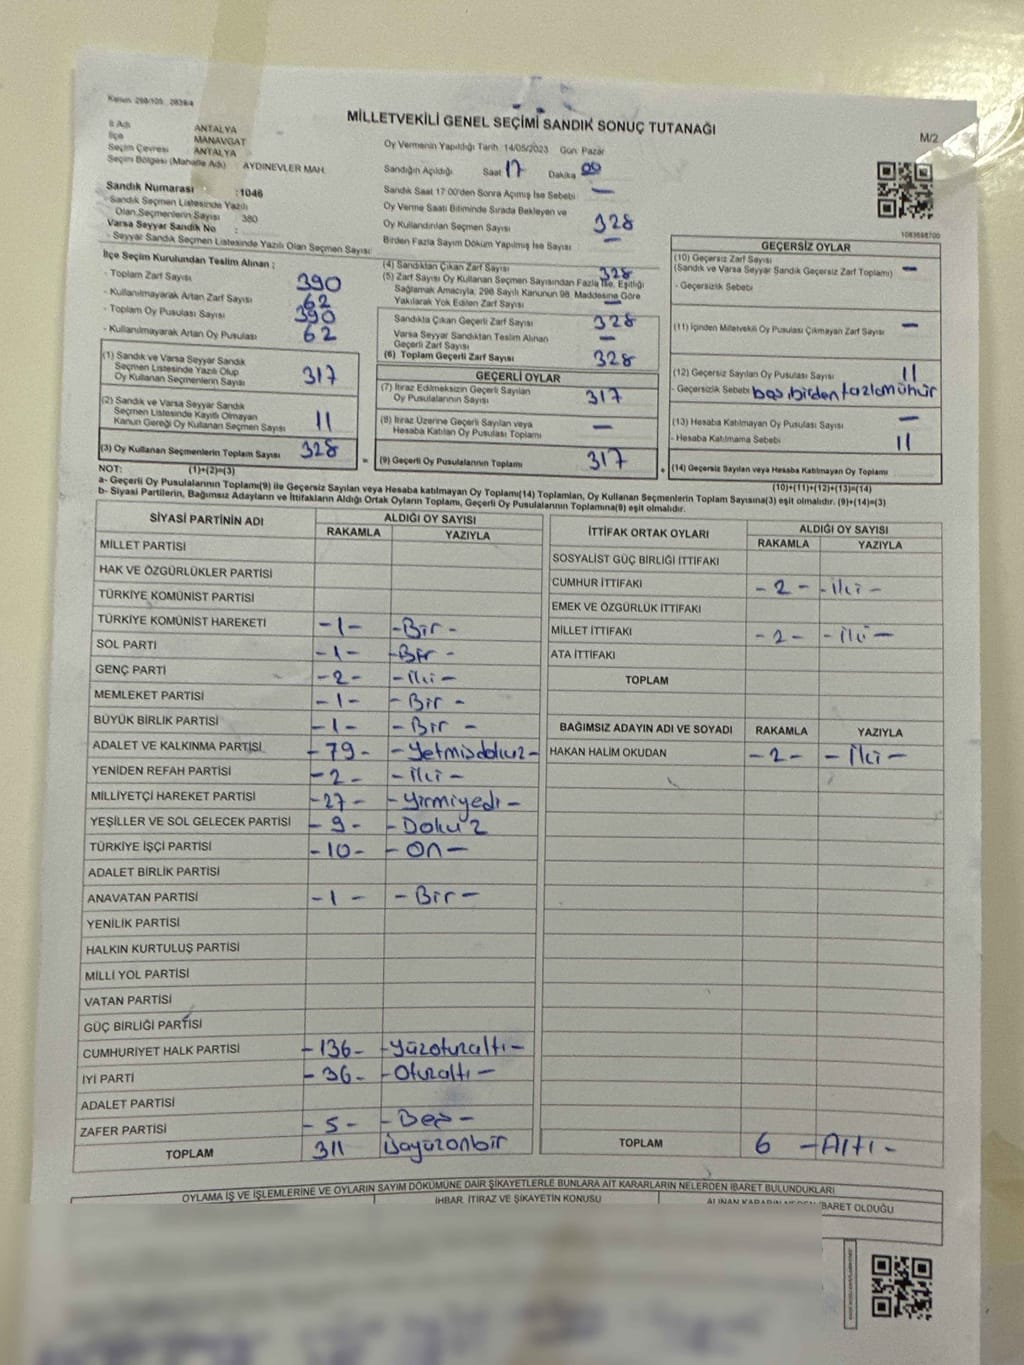 Kanun: 298/105 2839/4
MİLLETVEKİLİ GENEL SEÇİMİ SANDIK SONUÇ TUTANAĞI
M/2
İl Adı ANTALYA
İlçe MANAVGAT
Seçim Çevresi ANTALYA
Seçim Bölgesi (Mahalle Adı) AYDINEVLER MAH.
Sandık Numarası :1046
- Sandık Seçmen Listesinde Yazılı
Olan Seçmenlerin Sayısı 380
Varsa Seyyar Sandık No :
- Seyyar Sandık Seçmen Listesinde Yazılı Olan Seçmen Sayısı:
Oy Vermenin Yapıldığı Tarih :14/05/2023 Gün: Pazar
Sandığın Açıldığı Saat 17 Dakika 00
Sandık Saat 17:00'den Sonra Açımış İse Sebebi —
Oy Verme Saati Bitiminde Sırada Bekleyen ve
Oy Kullandırılan Seçmen Sayısı 328
Birden Fazla Sayım Döküm Yapılmış İse Sayısı —
1083698700
İlçe Seçim Kurulundan Teslim Alınan ;
- Toplam Zarf Sayısı 390
- Kullanılmayarak Artan Zarf Sayısı 62
- Toplam Oy Pusulası Sayısı 390
- Kullanılmayarak Artan Oy Pusulası 62
(1) Sandık ve Varsa Seyyar Sandık
Seçmen Listesinde Yazılı Olup
Oy Kullanan Seçmenlerin Sayısı 317
(2) Sandık ve Varsa Seyyar Sandık
Seçmen Listesinde Kayıtlı Olmayan
Kanun Gereği Oy Kullanan Seçmen Sayısı 11
(3) Oy Kullanan Seçmenlerin Toplam Sayısı 328
(4) Sandıktan Çıkan Zarf Sayısı 328
(5) Zarf Sayısı Oy Kullanan Seçmen Sayısından Fazla İse, Eşitliği
Sağlamak Amacıyla, 298 Sayılı Kanunun 98. Maddesine Göre
Yakılarak Yok Edilen Zarf Sayısı —
Sandıkta Çıkan Geçerli Zarf Sayısı 328
Varsa Seyyar Sandıktan Teslim Alınan
Geçerli Zarf Sayısı —
(6) Toplam Geçerli Zarf Sayısı 328
GEÇERLİ OYLAR
(7) İtiraz Edilmeksizin Geçerli Sayılan
Oy Pusulalarının Sayısı 317
(8) İtiraz Üzerine Geçerli Sayılan veya
Hesaba Katılan Oy Pusulası Toplamı —
= (9) Geçerli Oy Pusulalarının Toplamı 317 +
GEÇERSİZ OYLAR
(10) Geçersiz Zarf Sayısı —
(Sandık ve Varsa Seyyar Sandık Geçersiz Zarf Toplamı)
- Geçersizlik Sebebi
(11) İçinden Milletvekili Oy Pusulası Çıkmayan Zarf Sayısı —
(12) Geçersiz Sayılan Oy Pusulası Sayısı 11
- Geçersizlik Sebebi boş birden fazla mühür
(13) Hesaba Katılmayan Oy Pusulası Sayısı —
- Hesaba Katılmama Sebebi 11
(14) Geçersiz Sayılan veya Hesaba Katılmayan Oy Toplamı
NOT: (1)+(2)=(3) (10)+(11)+(12)+(13)=(14)
a- Geçerli Oy Pusulalarının Toplamı(9) ile Geçersiz Sayılan veya Hesaba katılmayan Oy Toplamı(14) Toplamları, Oy Kullanan Seçmenlerin Toplam Sayısına(3) eşit olmalıdır. (9)+(14)=(3)
b- Siyasi Partilerin, Bağımsız Adayların ve İttifakların Aldığı Ortak Oyların Toplamı, Geçerli Oy Pusulalarının Toplamına(9) eşit olmalıdır.
SİYASİ PARTİNİN ADI ALDIĞI OY SAYISI
RAKAMLA YAZIYLA
MİLLET PARTİSİ
HAK VE ÖZGÜRLÜKLER PARTİSİ
TÜRKİYE KOMÜNİST PARTİSİ
TÜRKİYE KOMÜNİST HAREKETİ -1- -Bir-
SOL PARTİ -1- -Bir-
GENÇ PARTİ -2- -İki-
MEMLEKET PARTİSİ -1- -Bir-
BÜYÜK BİRLİK PARTİSİ -1- -Bir-
ADALET VE KALKINMA PARTİSİ -79- -Yetmisdokuz-
YENİDEN REFAH PARTİSİ -2- -İki-
MİLLİYETÇİ HAREKET PARTİSİ -27- -Yirmiyedi-
YEŞİLLER VE SOL GELECEK PARTİSİ -9- -Dokuz
TÜRKİYE İŞÇİ PARTİSİ -10- -On-
ADALET BİRLİK PARTİSİ
ANAVATAN PARTİSİ -1- -Bir-
YENİLİK PARTİSİ
HALKIN KURTULUŞ PARTİSİ
MİLLİ YOL PARTİSİ
VATAN PARTİSİ
GÜÇ BİRLİĞİ PARTİSİ
CUMHURİYET HALK PARTİSİ -136- -Yüzotuzaltı-
İYİ PARTİ -36- -Otuzaltı-
ADALET PARTİSİ
ZAFER PARTİSİ -5- -Beş-
TOPLAM 311 Üçyüzonbir
İTTİFAK ORTAK OYLARI ALDIĞI OY SAYISI
RAKAMLA YAZIYLA
SOSYALİST GÜÇ BİRLİĞİ İTTİFAKI
CUMHUR İTTİFAKI -2- -İki-
EMEK VE ÖZGÜRLÜK İTTİFAKI
MİLLET İTTİFAKI -2- -İki-
ATA İTTİFAKI
TOPLAM
BAĞIMSIZ ADAYIN ADI VE SOYADI RAKAMLA YAZIYLA
HAKAN HALİM OKUDAN -2- -İki-
TOPLAM 6 -Altı-
OYLAMA İŞ VE İŞLEMLERİNE VE OYLARIN SAYIM DÖKÜMÜNE DAİR ŞİKAYETLERLE BUNLARA AİT KARARLARIN NELERDEN İBARET BULUNDUKLARI
İHBAR, İTİRAZ VE ŞİKAYETİN KONUSU
İBARET OLDUĞU